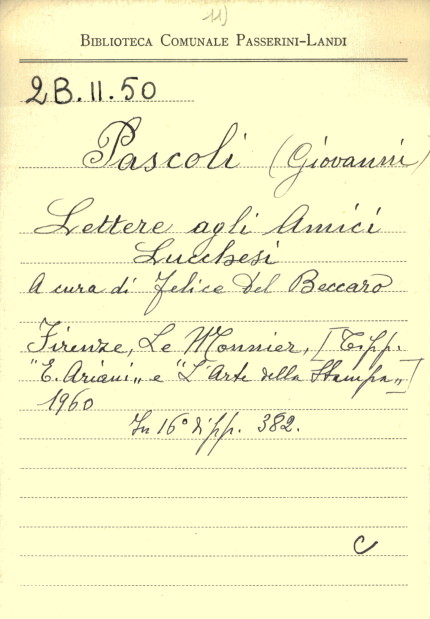 11)
BIBLIOTECA COMUNALE PASSERINI-LANDI
2B.II.50
Pascoli (Giovanni)
Lettere agli Amici
Lucchesi
A cura di Felice Del Beccaro
Firenze, Le Monnier, [Tipp.
"E. Ariani„ e "L'Arte della Stampa„]
1960
In 16° di pp. 382.
C